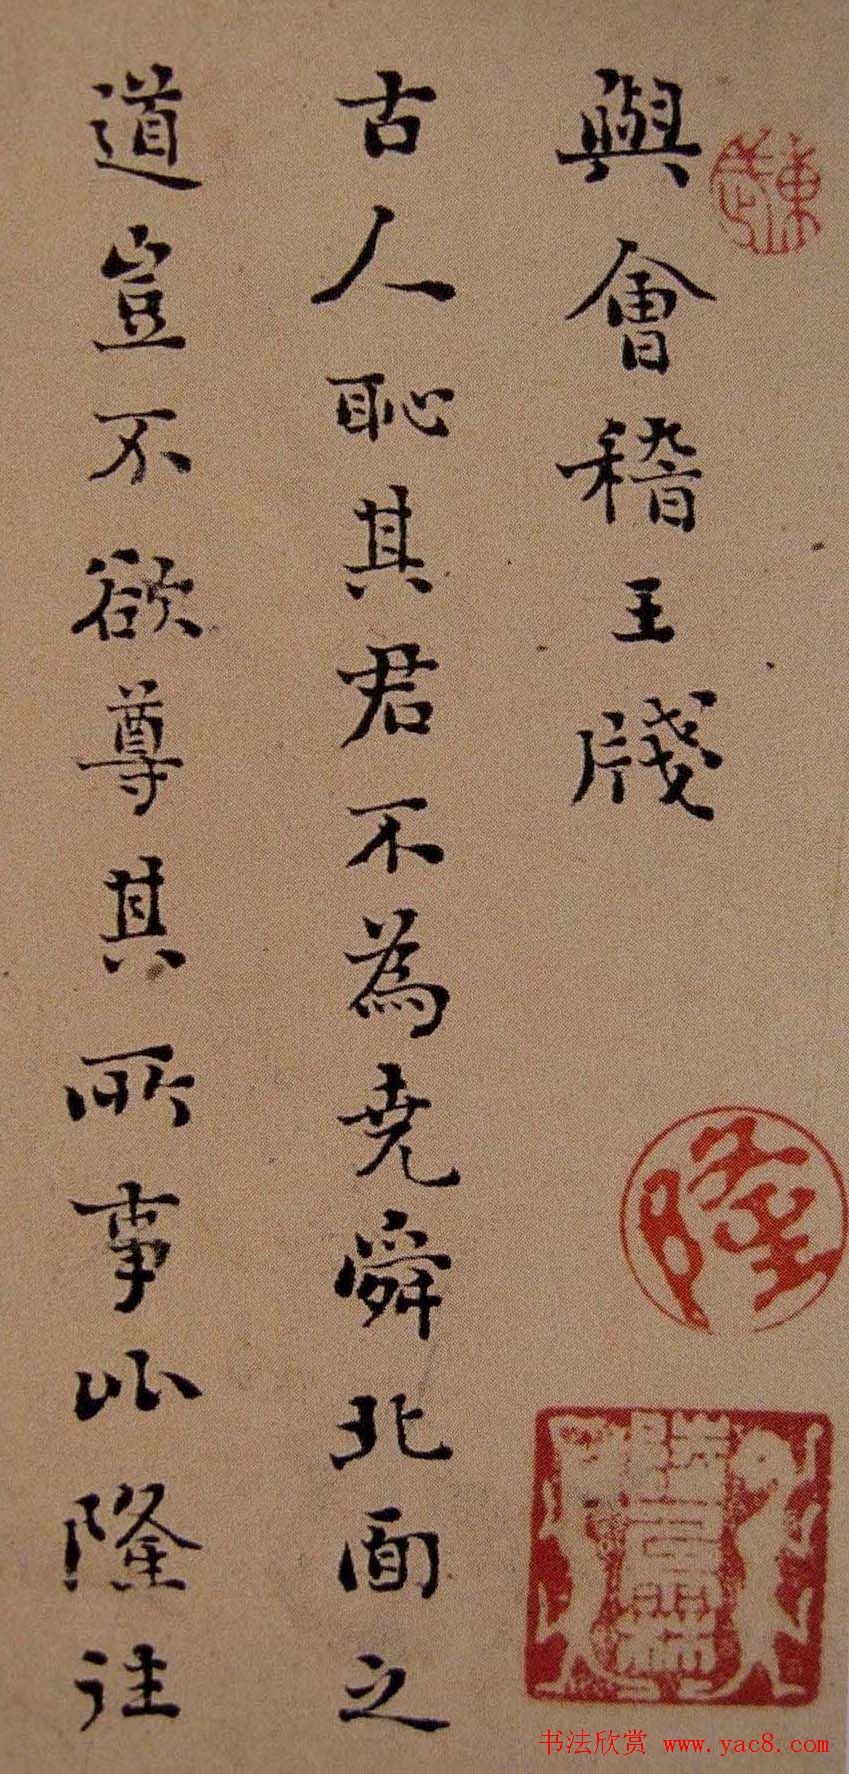 與會稽王牋
古人恥其君不為堯舜北面之
道豈不欲尊其所事比隆往
隆
书法欣赏 www.yac8.com